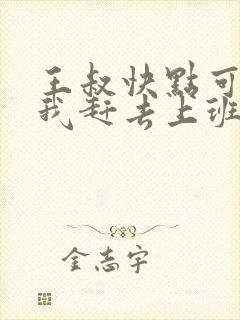 王叔快點可
我赶去上班
金志宇